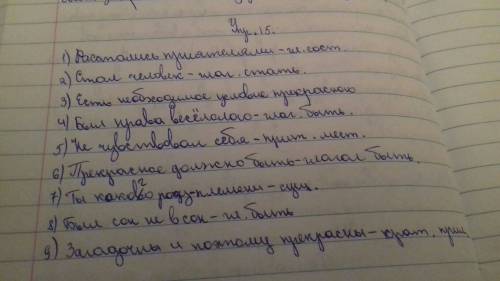 Упр. 15.
1) Расстались приятелями - гл. сост.
2) Стал человек - глаг. стать.
3) Есть необходимое условие прекрасного
4) Был нрава весёлого - глаг. быть.
5) Не чувствовал себя - прит. мест.
6) Прекрасное должно быть - глагол быть.
7) Ты каково роду-племени - сущ.
8) Был сон не в сон - гл. быть
9) Загадочны и поэтому прекрасны - крат. прил